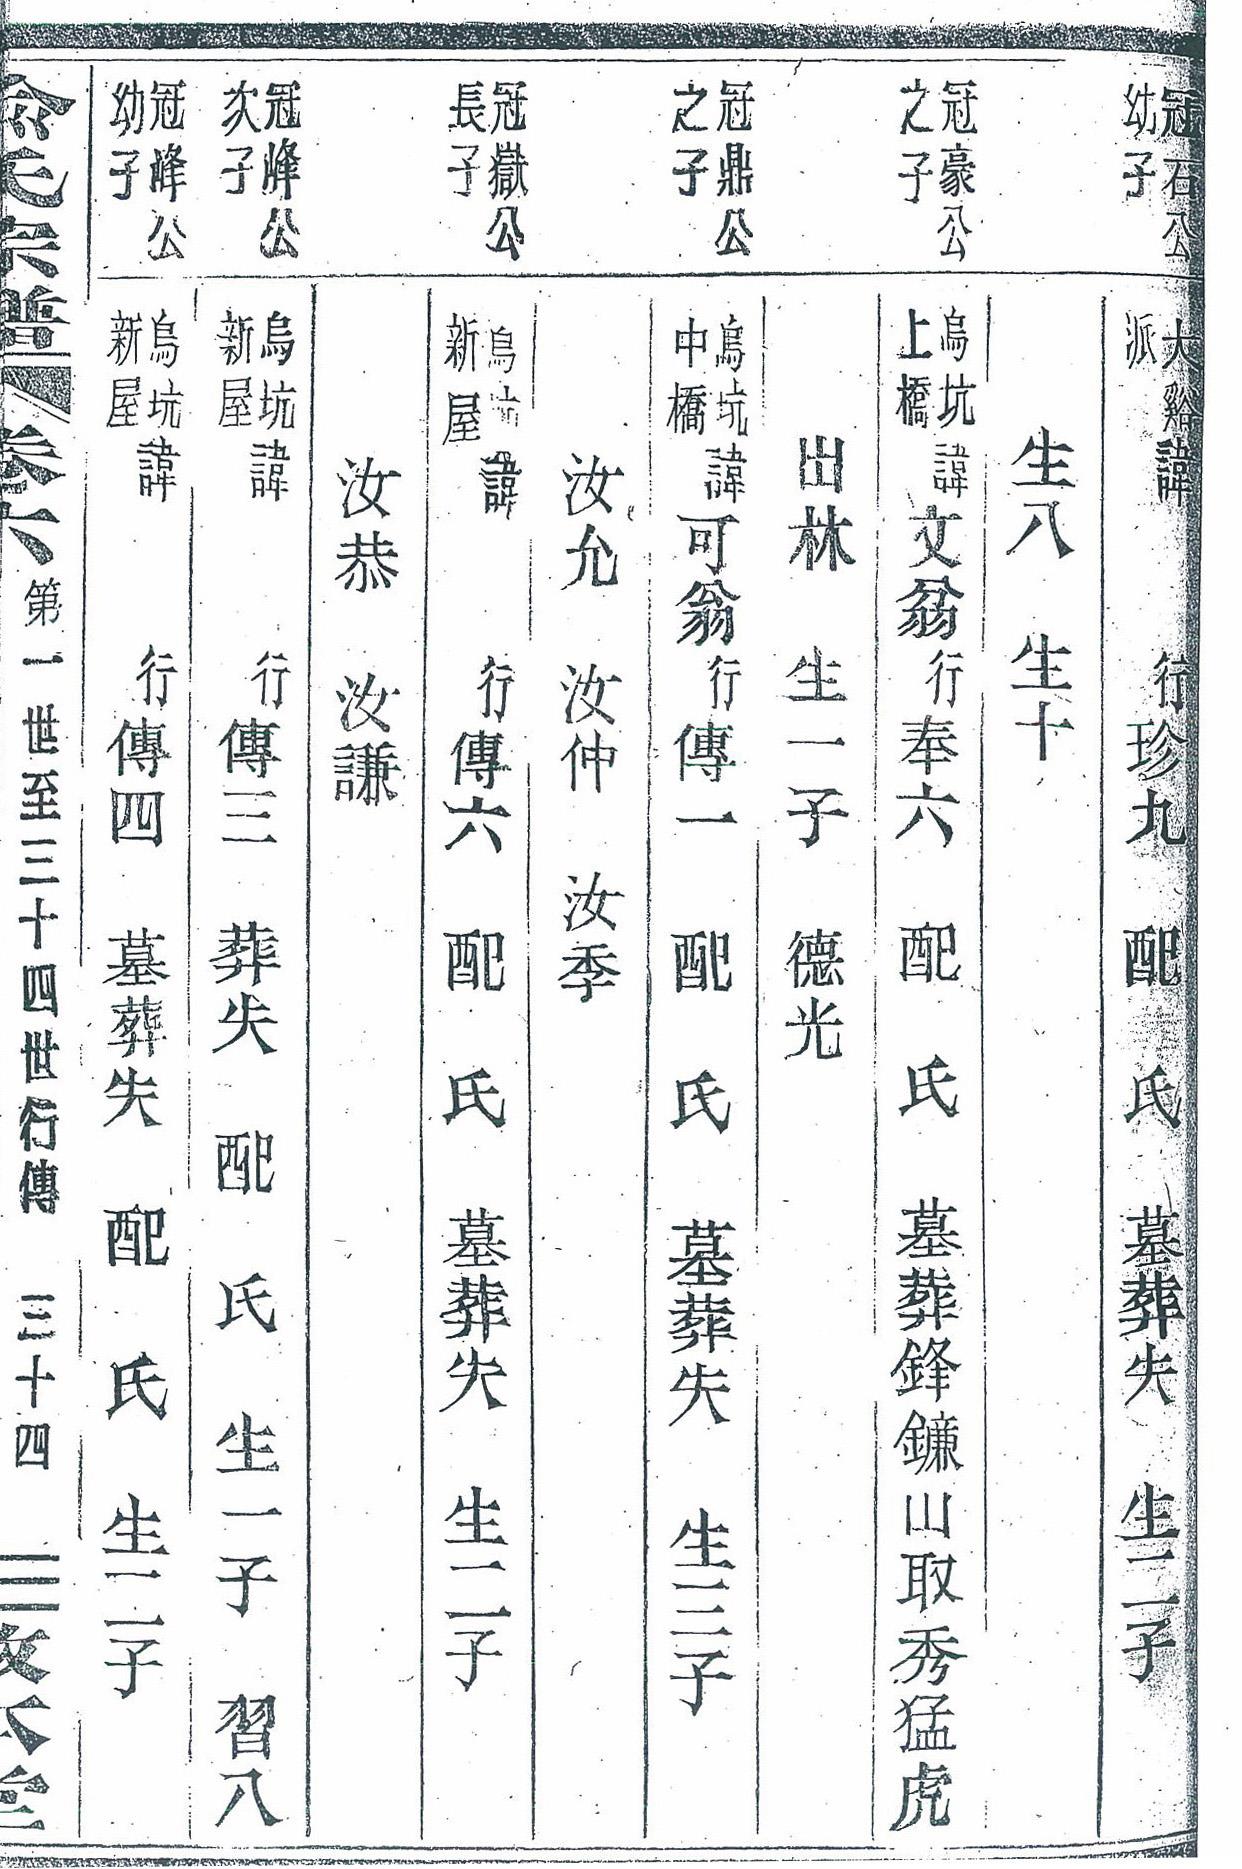 冠石公幼子
大谿派諱 行珍九 配 氏 墓葬失 生二子
生八 生十
冠豪公之子
烏坑上橋諱文翁行奉六 配 氏 墓葬鋒鐮山取秀猛虎
出林 生一子 德光
冠鼎公之子
烏坑中橋諱可翁行傳一 配 氏 墓葬失 生三子
汝允 汝仲 汝季
冠嶽公長子
烏坑新屋諱 行傳六 配 氏 墓葬失 生二子
汝恭 汝謙
冠峰公次子
烏坑新屋諱 行傳三 葬失 配 氏 生一子 習八
冠峰公幼子
烏坑新屋諱 行傳四 墓葬失 配 氏 生二子
俞氏宗譜 卷六 第一世至三十四世行傳 三十四 敦本堂